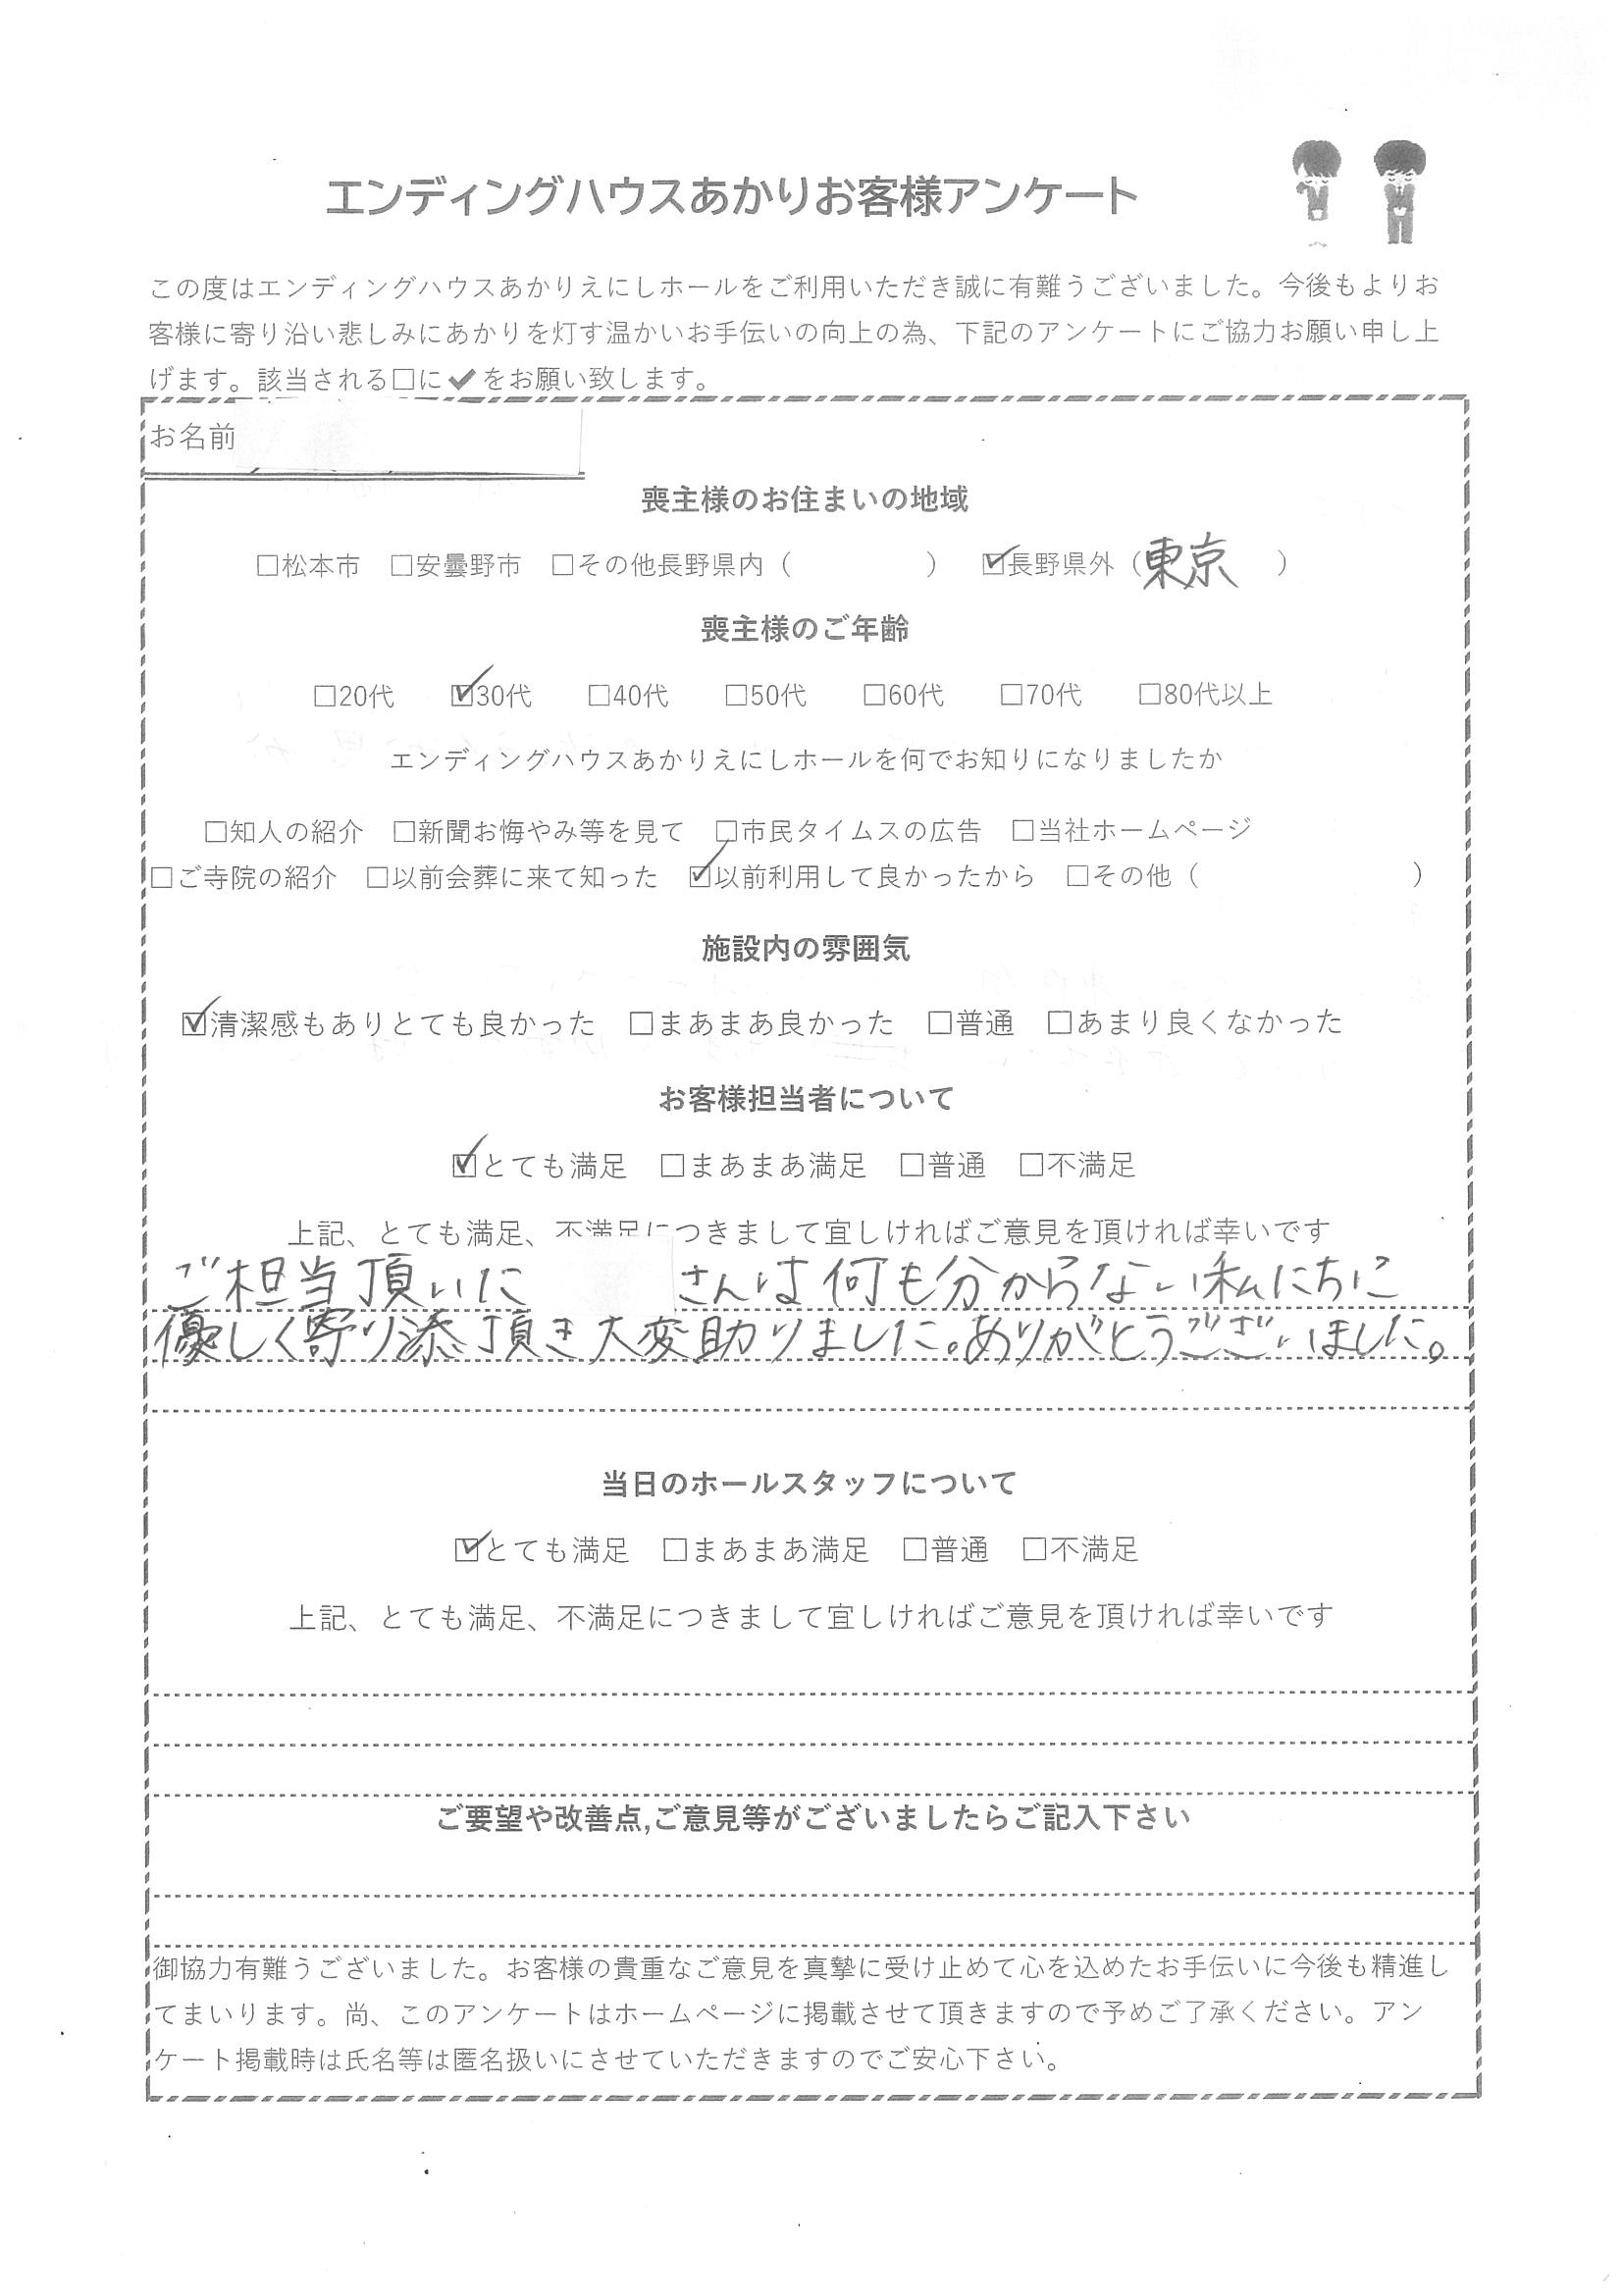 エンディングハウスあかりお客様アンケート
この度はエンディングハウスあかりえにしホールをご利用いただき誠に有難うございました。今後もよりお
客様に寄り沿い悲しみにあかりを灯す温かいお手伝いの向上の為、下記のアンケートにご協力お願い申し上
げます。該当される□に✔をお願い致します。
お名前
喪主様のお住まいの地域
□松本市 □安曇野市 □その他長野県内（ ） ☑長野県外（東京 ）
喪主様のご年齢
□20代 ☑30代 □40代 □50代 □60代 □70代 □80代以上
エンディングハウスあかりえにしホールを何でお知りになりましたか
□知人の紹介 □新聞お悔やみ等を見て □市民タイムスの広告 □当社ホームページ
□ご寺院の紹介 □以前会葬に来て知った ☑以前利用して良かったから □その他（ ）
施設内の雰囲気
☑清潔感もありとても良かった □まあまあ良かった □普通 □あまり良くなかった
お客様担当者について
☑とても満足 □まあまあ満足 □普通 □不満足
上記、とても満足、不満足につきまして宜しければご意見を頂ければ幸いです
ご担当頂いた さんは何も分からない私たちに
優しく寄り添頂き大変助りました。ありがとうございました。
当日のホールスタッフについて
☑とても満足 □まあまあ満足 □普通 □不満足
上記、とても満足、不満足につきまして宜しければご意見を頂ければ幸いです
ご要望や改善点,ご意見等がございましたらご記入下さい
御協力有難うございました。お客様の貴重なご意見を真摯に受け止めて心を込めたお手伝いに今後も精進し
てまいります。尚、このアンケートはホームページに掲載させて頂きますので予めご了承ください。アン
ケート掲載時は氏名等は匿名扱いにさせていただきますのでご安心下さい。